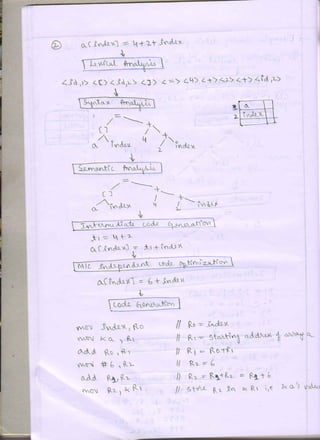 ② a[index] = 4+2+index
Lexical Analysis
<id,1> <[> <id,2> <]> <=> <4> <+> <2> <+> <id,2>
Syntax Analysis
1 a
2 index
=
[ ] +
a index 4 +
2 index
Semantic Analysis
=
[ ] +
a index 4 +
2 index
Intermediate code Generation
t1 = 4+2
a[index] = t1+index
M/C Independent code optimization
a[index] = 6+index
Code Generation
mov Index, R0 // R0 = index
mov &a, R1 // R1 = Starting address of array a
add R0, R1 // R1 = R0+R1
mov #6, R2 // R2 = 6
add R0, R2 // R2 = R0+R2 = R0+6
mov R2, &R1 // Store R2 in &R1 i,e &a's value